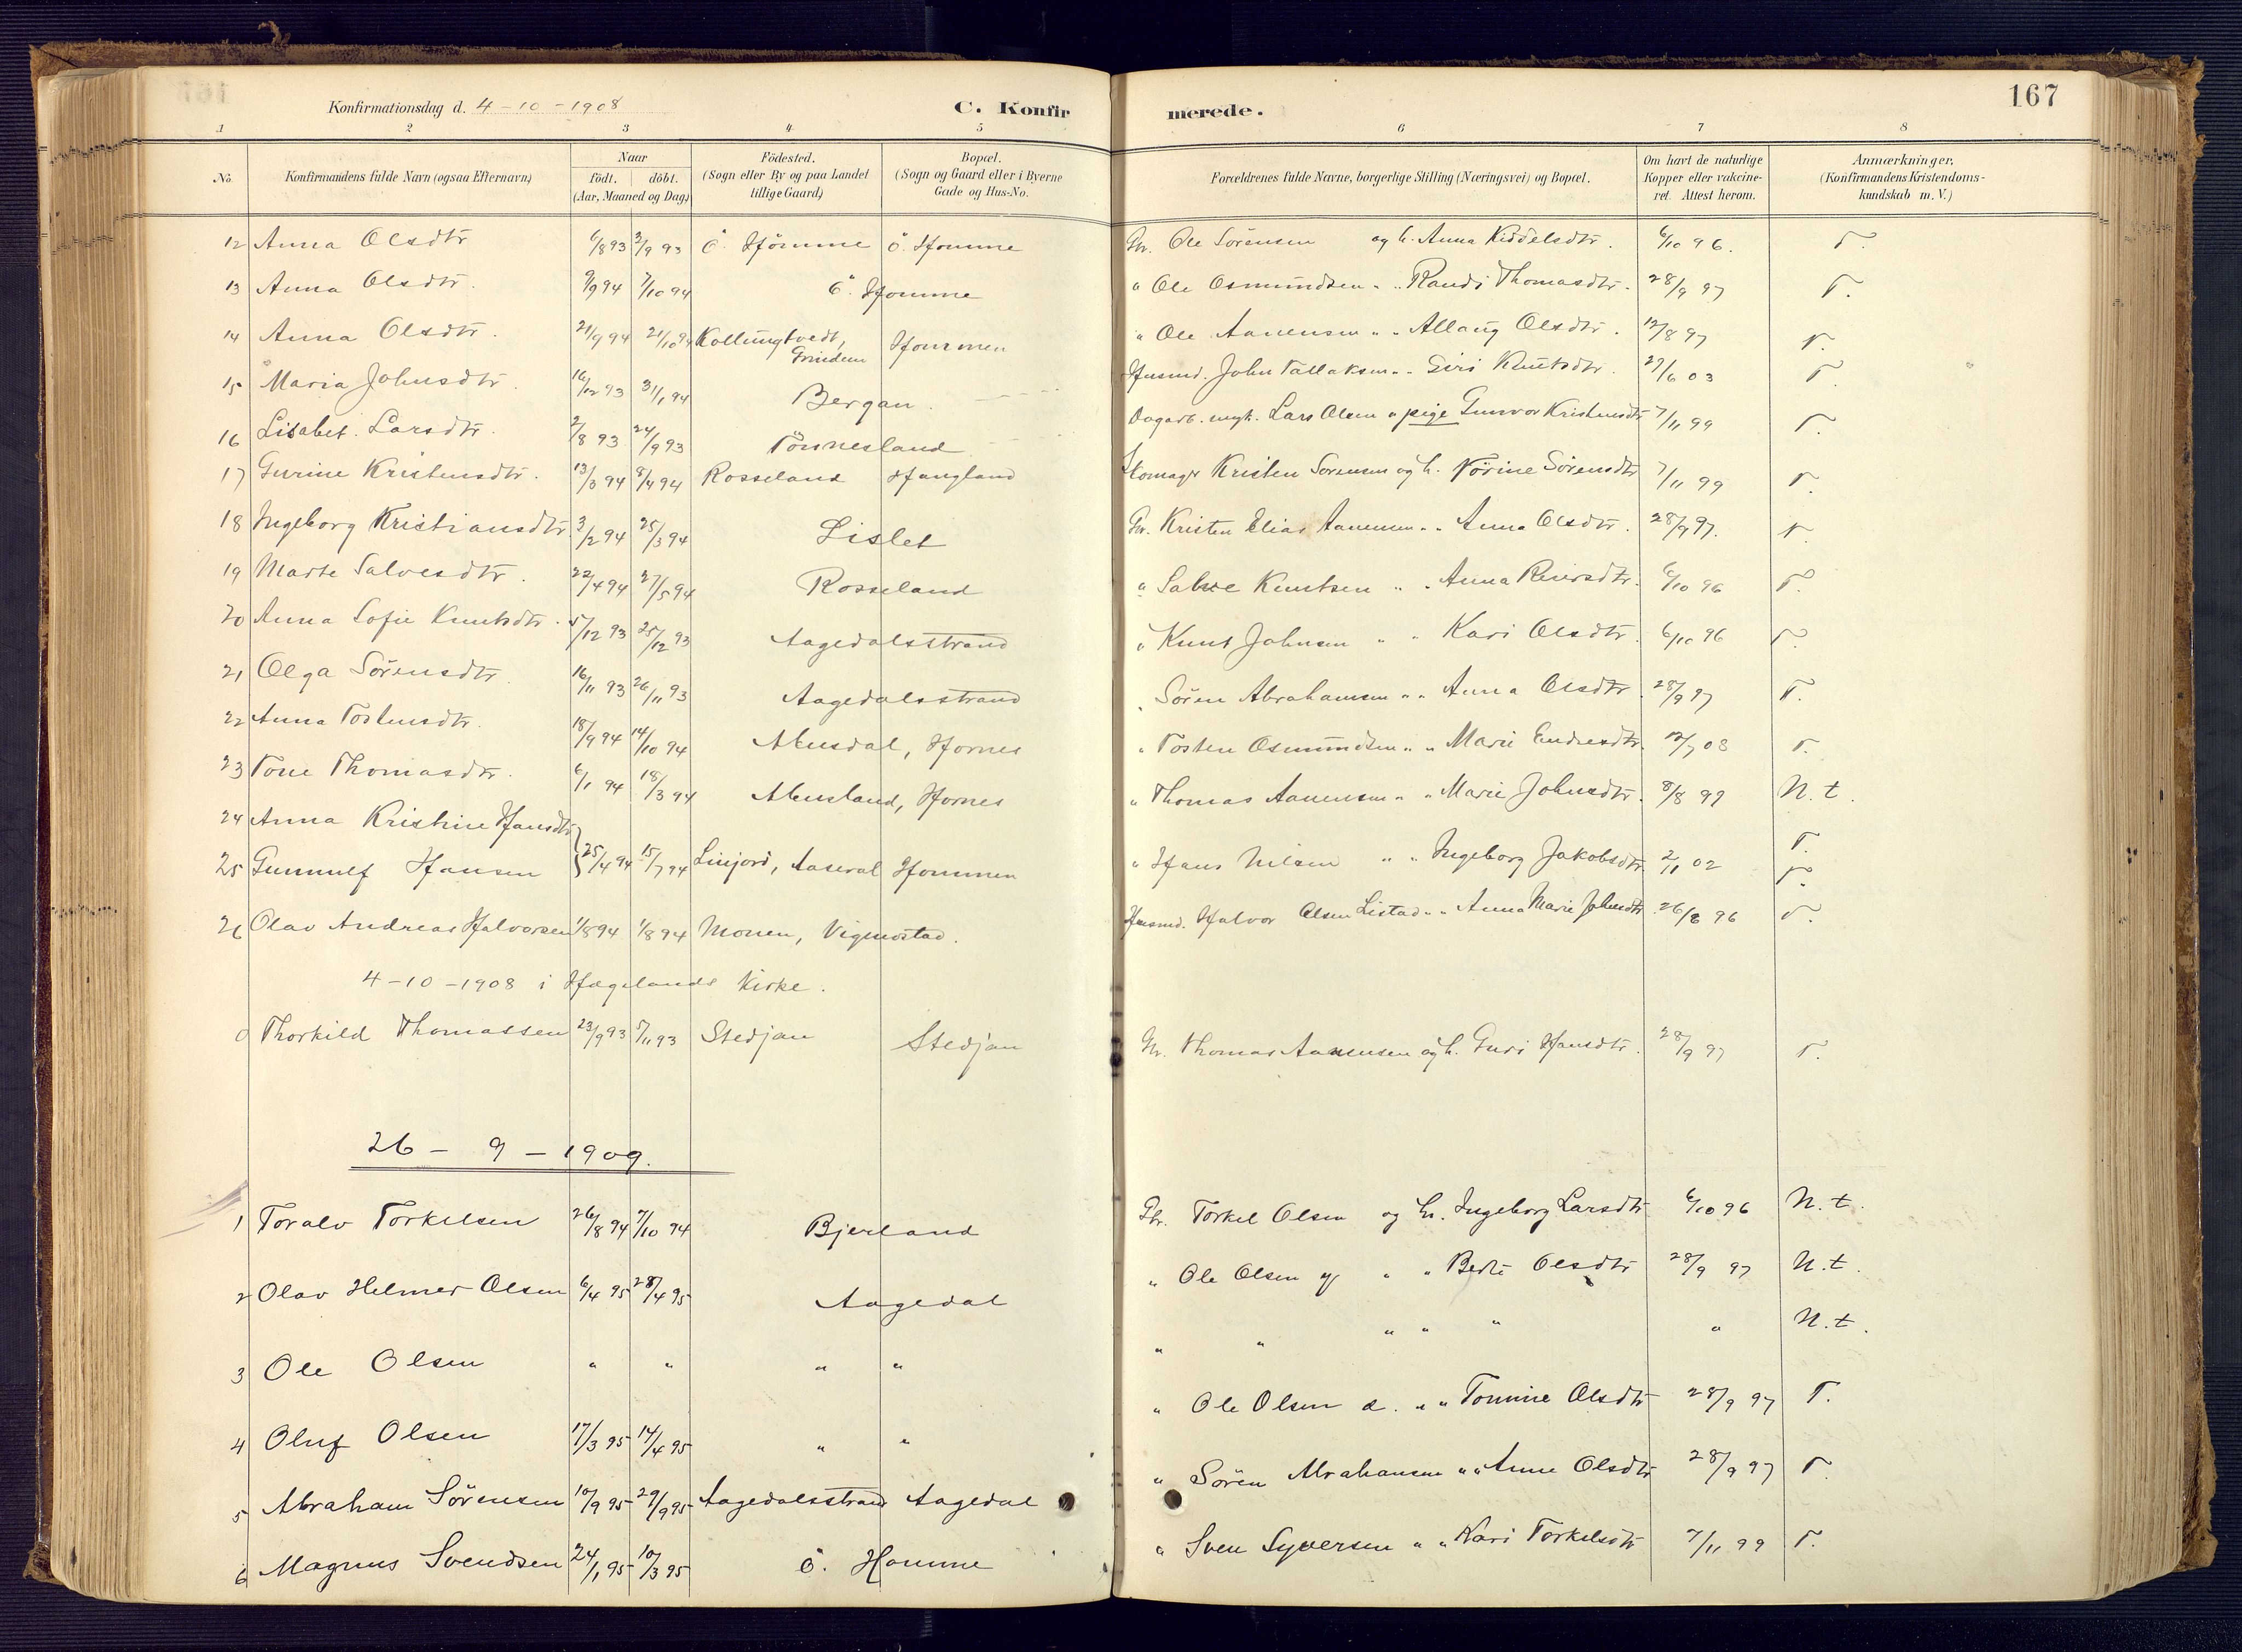 167
Konfirmationsdag d. 4-10-1908 C. Konfirmerede.
1 2 3 4 5 6 7 8
No. Konfirmandens fulde Navn (ogsaa Efternavn) Naar Födt. döbt. (Aar, Maaned og Dag) Födested. (Sogn eller By og paa Landet tillige Gaard) Bopæl. (Sogn og Gaard eller i Byerne Gade og Hus-No. Forældrenes fulde Navne, borgerlige Stilling (Næringsvei) og Bopæl. Om havt de naturlige Kopper eller vakcineret. Attest herom. Anmærkninger. (Konfirmandens Kristendomskundskab m. V.)
12 Anna Olsdtr 6/8 93 3/9 93 Ö. Homme Ö. Homme Gr. Ole Sörensen og h. Anna Kiddelsdtr. 6/10 96. T.
13 Anna Olsdtr. 9/9 94 7/10 94 Ö. Homme " Ole Osmundsen " " Randi Thomasdtr. 28/9 97 T.
14 Anna Olsdtr. 21/9 94 21/10 94 Kollungtvedt, Grindem Hommen " Ole Aanensen " " Allaug Olsdtr. 12/8 97 T.
15 Maria Johnsdtr. 16/12 93 31/1 94 Bergan. Husmd. John Tallaksen " " Siri Knutsdtr. 27/6 03 T.
16 Lisabet Larsdtr. 2/8 93 24/9 93 Tönnesland Dagarb. ungk. Lars Olsen " pige Gunvor Kristensdtr 7/11 99 T.
17 Gurine Kristensdtr. 13/3 94 8/4 94 Rosseland Haugland Skomager Kristen Sorensen og h. Törine Sörensdtr 7/11 99 T.
18 Ingeborg Kristiansdtr. 3/2 94 25/3 94 Lislet Gr. Kristen Elias Aanensen " " Anna Olsdtr. 28/9 97. T.
19 Marte Salvesdtr. 22/4 94 27/5 94 Rosseland " Salve Knutsen " " Anna Reiersdtr. 6/10 96 T.
20 Anna Sofie Knutsdtr. 5/12 93 25/12 93 Aagedalsstrand " Knut Johnsen " " Kari Olsdtr. 6/10 96 T.
21 Olga Sörensdtr. 16/11 93 26/11 93 Aagedalsstrand " Sören Abrahamsen " " Anna Olsdtr. 28/9 97 T.
22 Anna Tostensdtr. 18/9 94 14/10 94 Abusdal, Hornes " Tosten Osmundsen " " Marie Endresdtr. 12/7 08 T.
23 Tone Thomasdtr. 6/1 94 18/3 94 Abusland, Hornes " Thomas Aanensen " " Marie Johnsdtr. 8/8 99 N.t.
24 Anna Kristine Hansdtr T.
25 Gunnulf Hansen 25/4 94 15/7 94 Linjord, Aaseral Hommen " Hans Nilsen " " Ingeborg Jakobsdtr. 2/1 02 T.
26 Olav Andreas Halvorsen 1/8 94 1/8 94 Monen, Vigmostad. Husmd. Halvor Olsen Listad " " Anna Marie Johnsdtr. 26/8 96 T.
4-10-1908 i Hægelands Kirke.
0 Thorkild Thomassen 23/9 93 5/11 93 Stedjan Stedjan Gr. Thomas Aanensen og h. Guri Hansdtr. 28/9 97 T.
26-9-1909.
1 Toralv Torkelsen 26/8 94 7/10 94 Bjerland Gbr. Torkel Olsen og h. Ingeborg Larsdtr 6/10 96 N.t.
2 Olav Helmer Olsen 6/4 95 28/4 95 Aagedal " Ole Olsen y " " Berte Olsdtr 28/9 97 N.t.
3 Ole Olsen " " " " " " " " " " N.t.
4 Oluf Olsen 17/3 95 14/4 95 " " " Ole Olsen d. " " Tomine Olsdtr 28/9 97 T.
5 Abraham Sörensen 10/9 95 29/9 95 Aagedalsstrand Aagedal " Sören Abrahamsen " " Anne Olsdtr 28/9 97 T.
6 Magnus Svendsen 24/1 95 10/3 95 ö. Homme " Sven Syversen " " Kari Torkelsdtr 7/11 99 T.